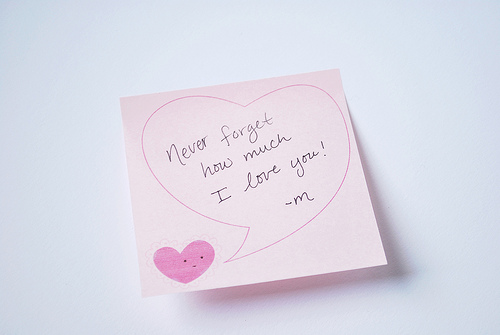 Never forget
how much
I love you!
-m